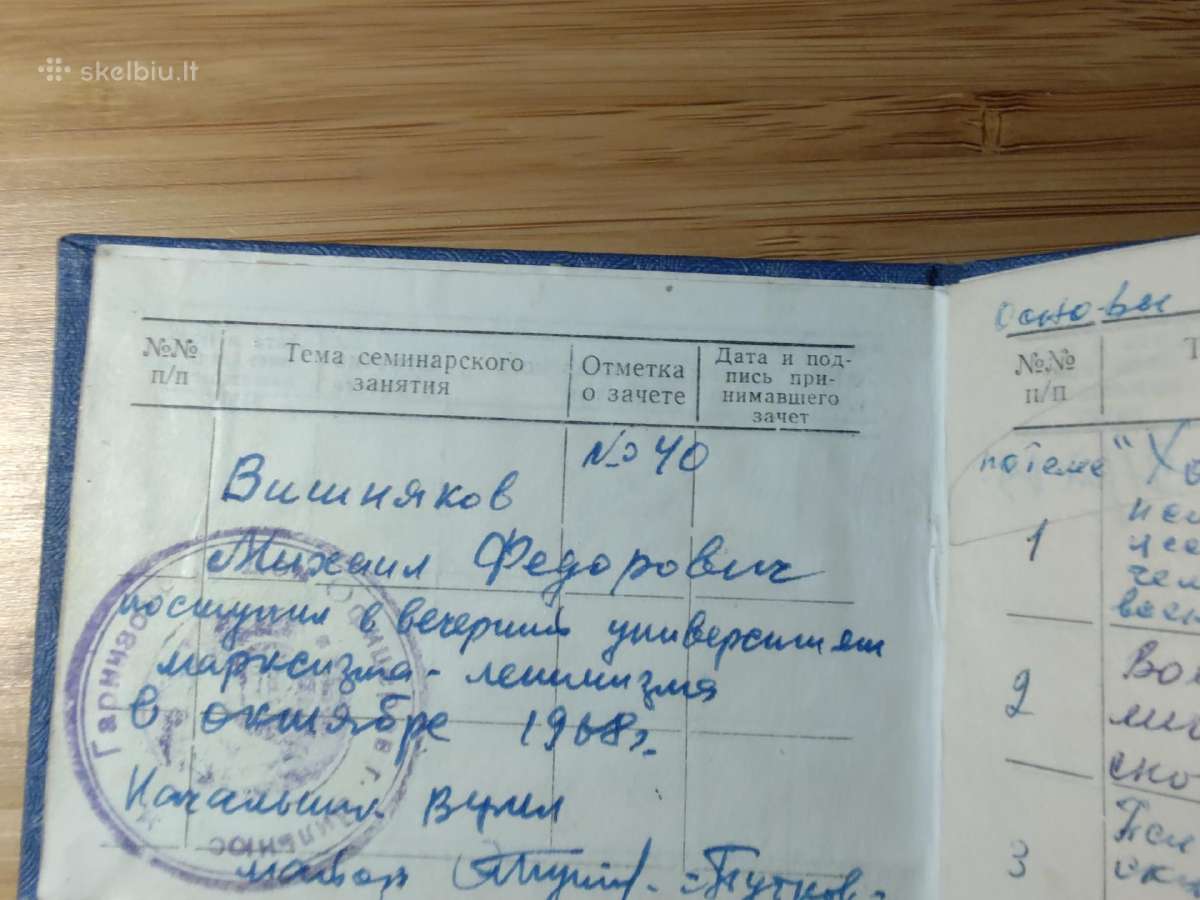 skelbiu.lt
№№ п/п
Тема семинарского занятия
Отметка о зачете
Дата и под-
пись при-
нимавшего
зачет
№ 40
Вишняков
Михаил Федорович
поступил в вечерний университет
марксизма-ленинизма
в октябре 1968г.
Начальник ВУМЛ
майор
Гарнизо
Вильнюс
Основы
№№ п/п
по теме
1
2
3